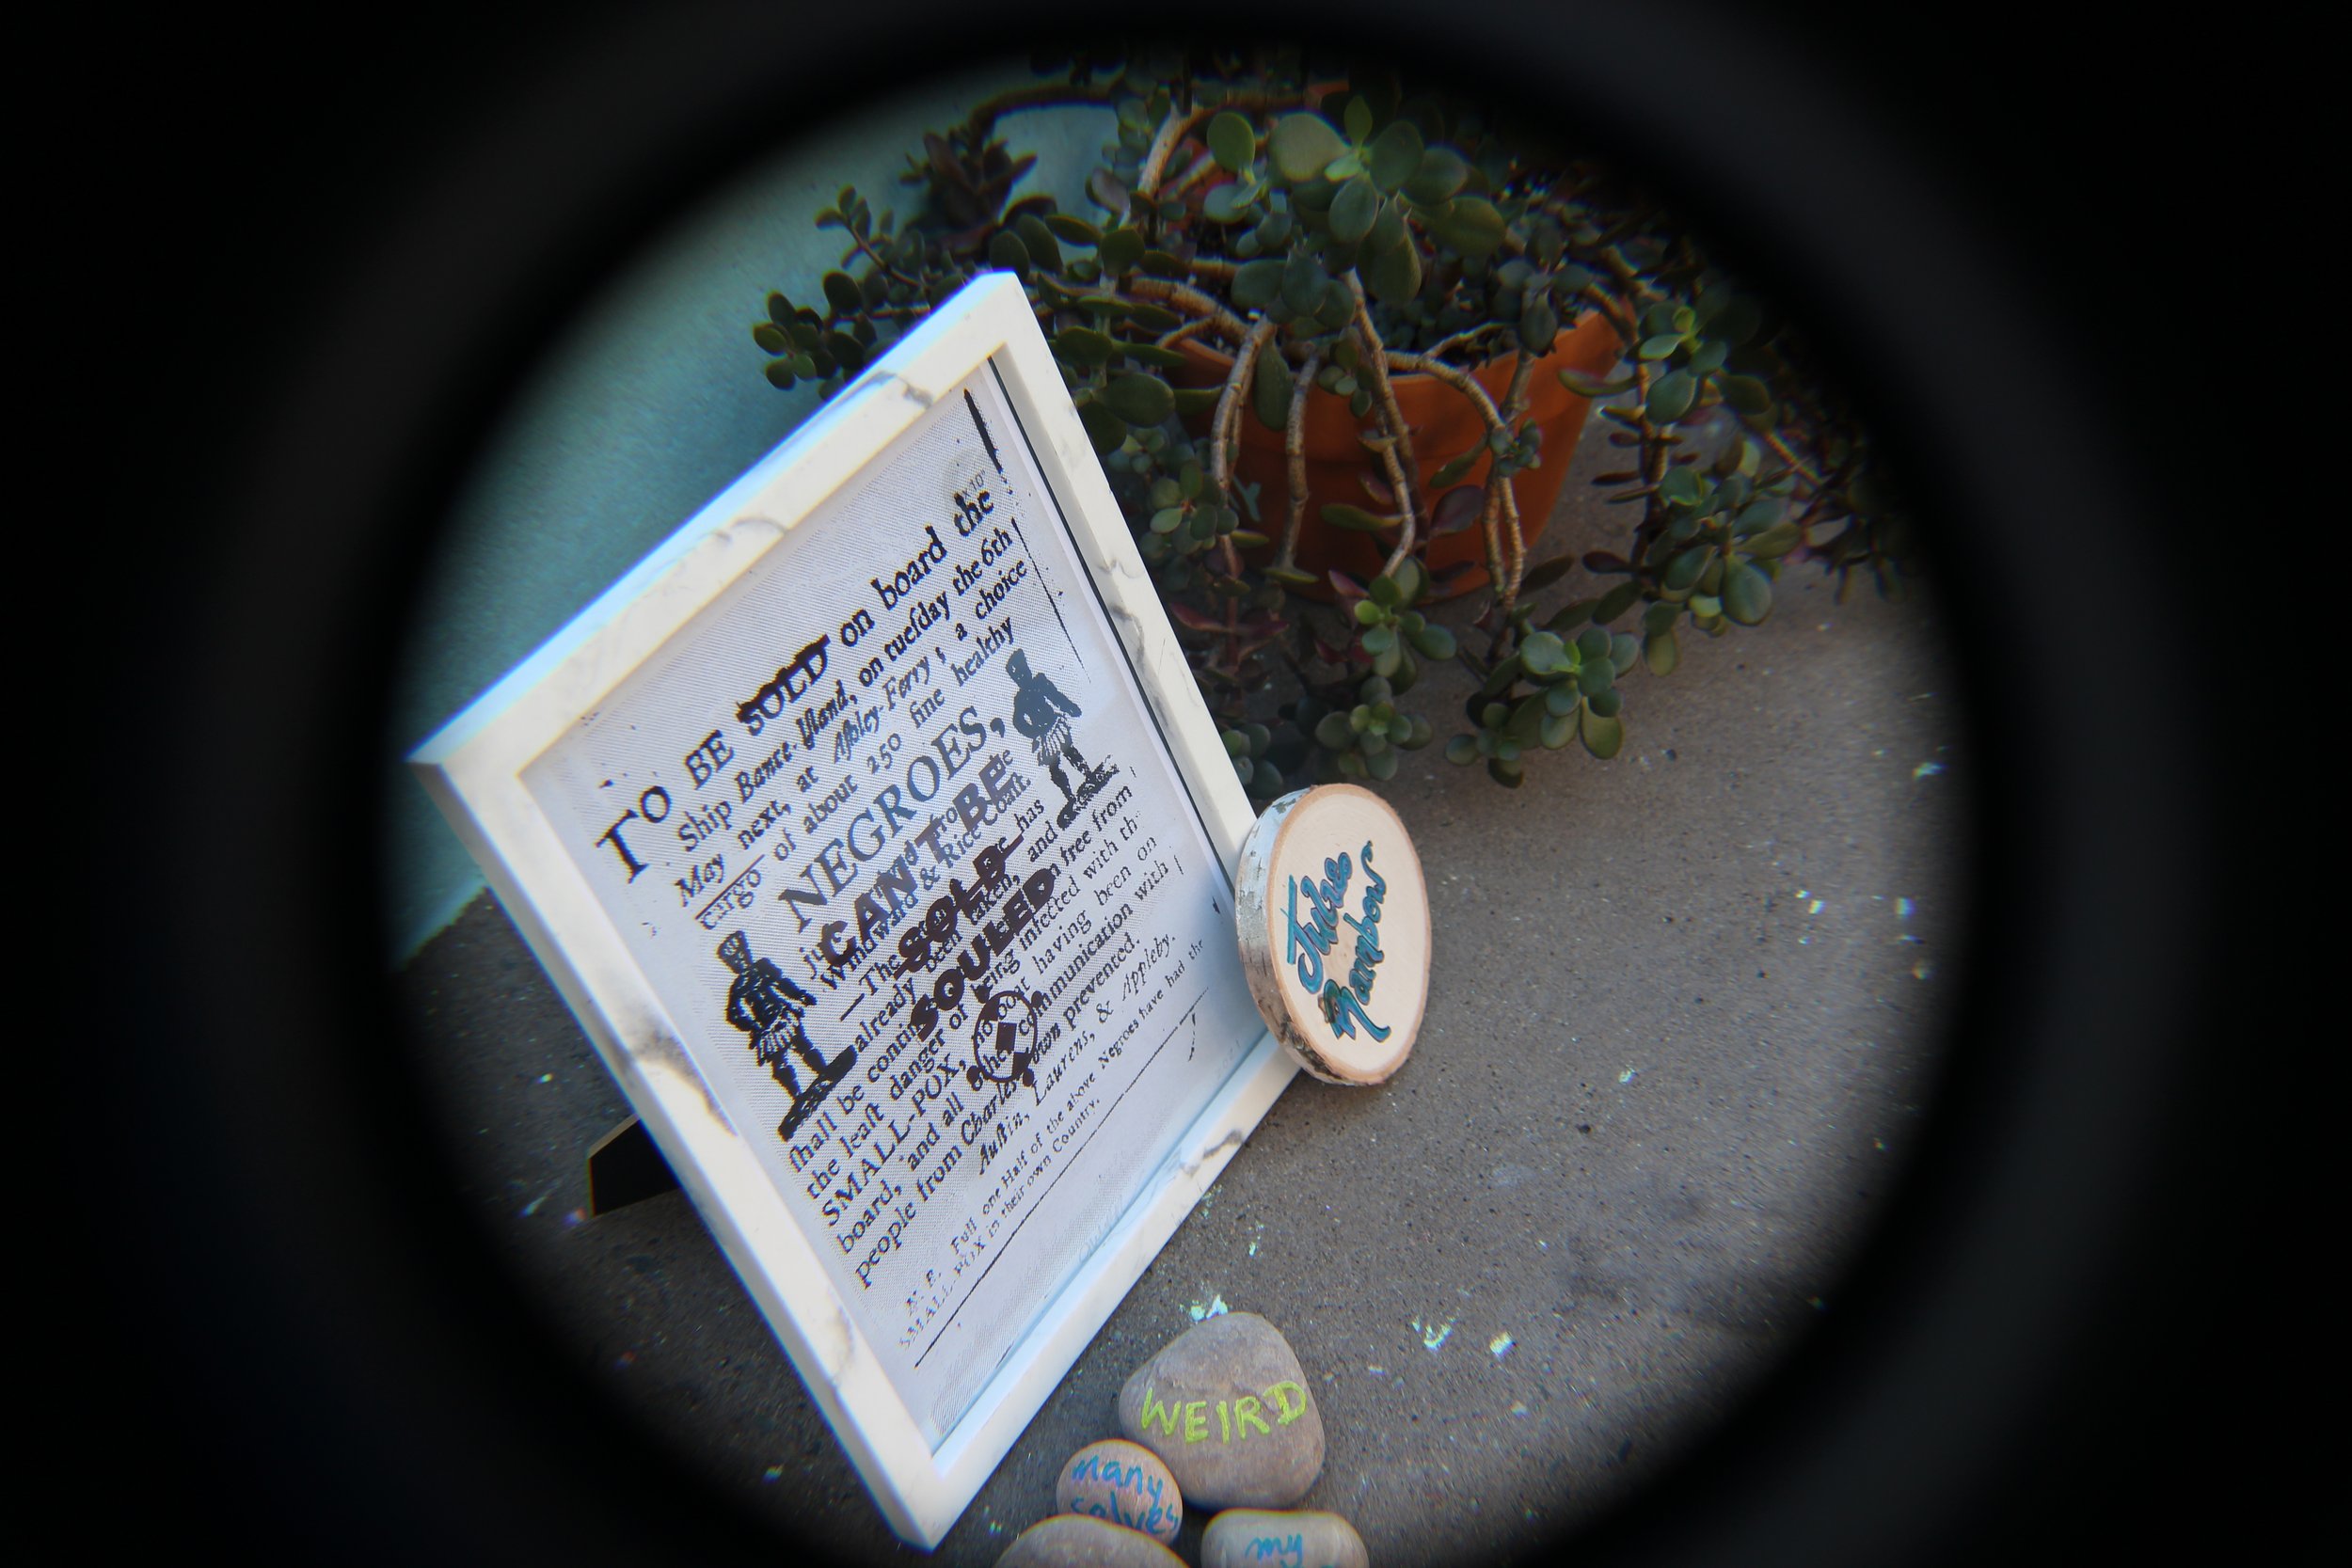 TO BE SOLD on board the
Ship Bance-Yland, on tuesday the 6th
May next, at Ashley-Ferry; a choice
cargo of about 250 fine healthy
NEGROES,
CAN'T BE
Windward & Rice Coast.
SOLD
—The has
already been taken, and
SOULED
shall be free from
the least danger of being infected with
SMALL-POX, no boat having been on
board, and all other communication with
people from Charles-Town prevented.
Austin, Laurens, & Appleby.
N. B. Full one Half of the above Negroes have had the
SMALL-POX in their own Country.
Jubee
Rambow
WEIRD
many
solves
my